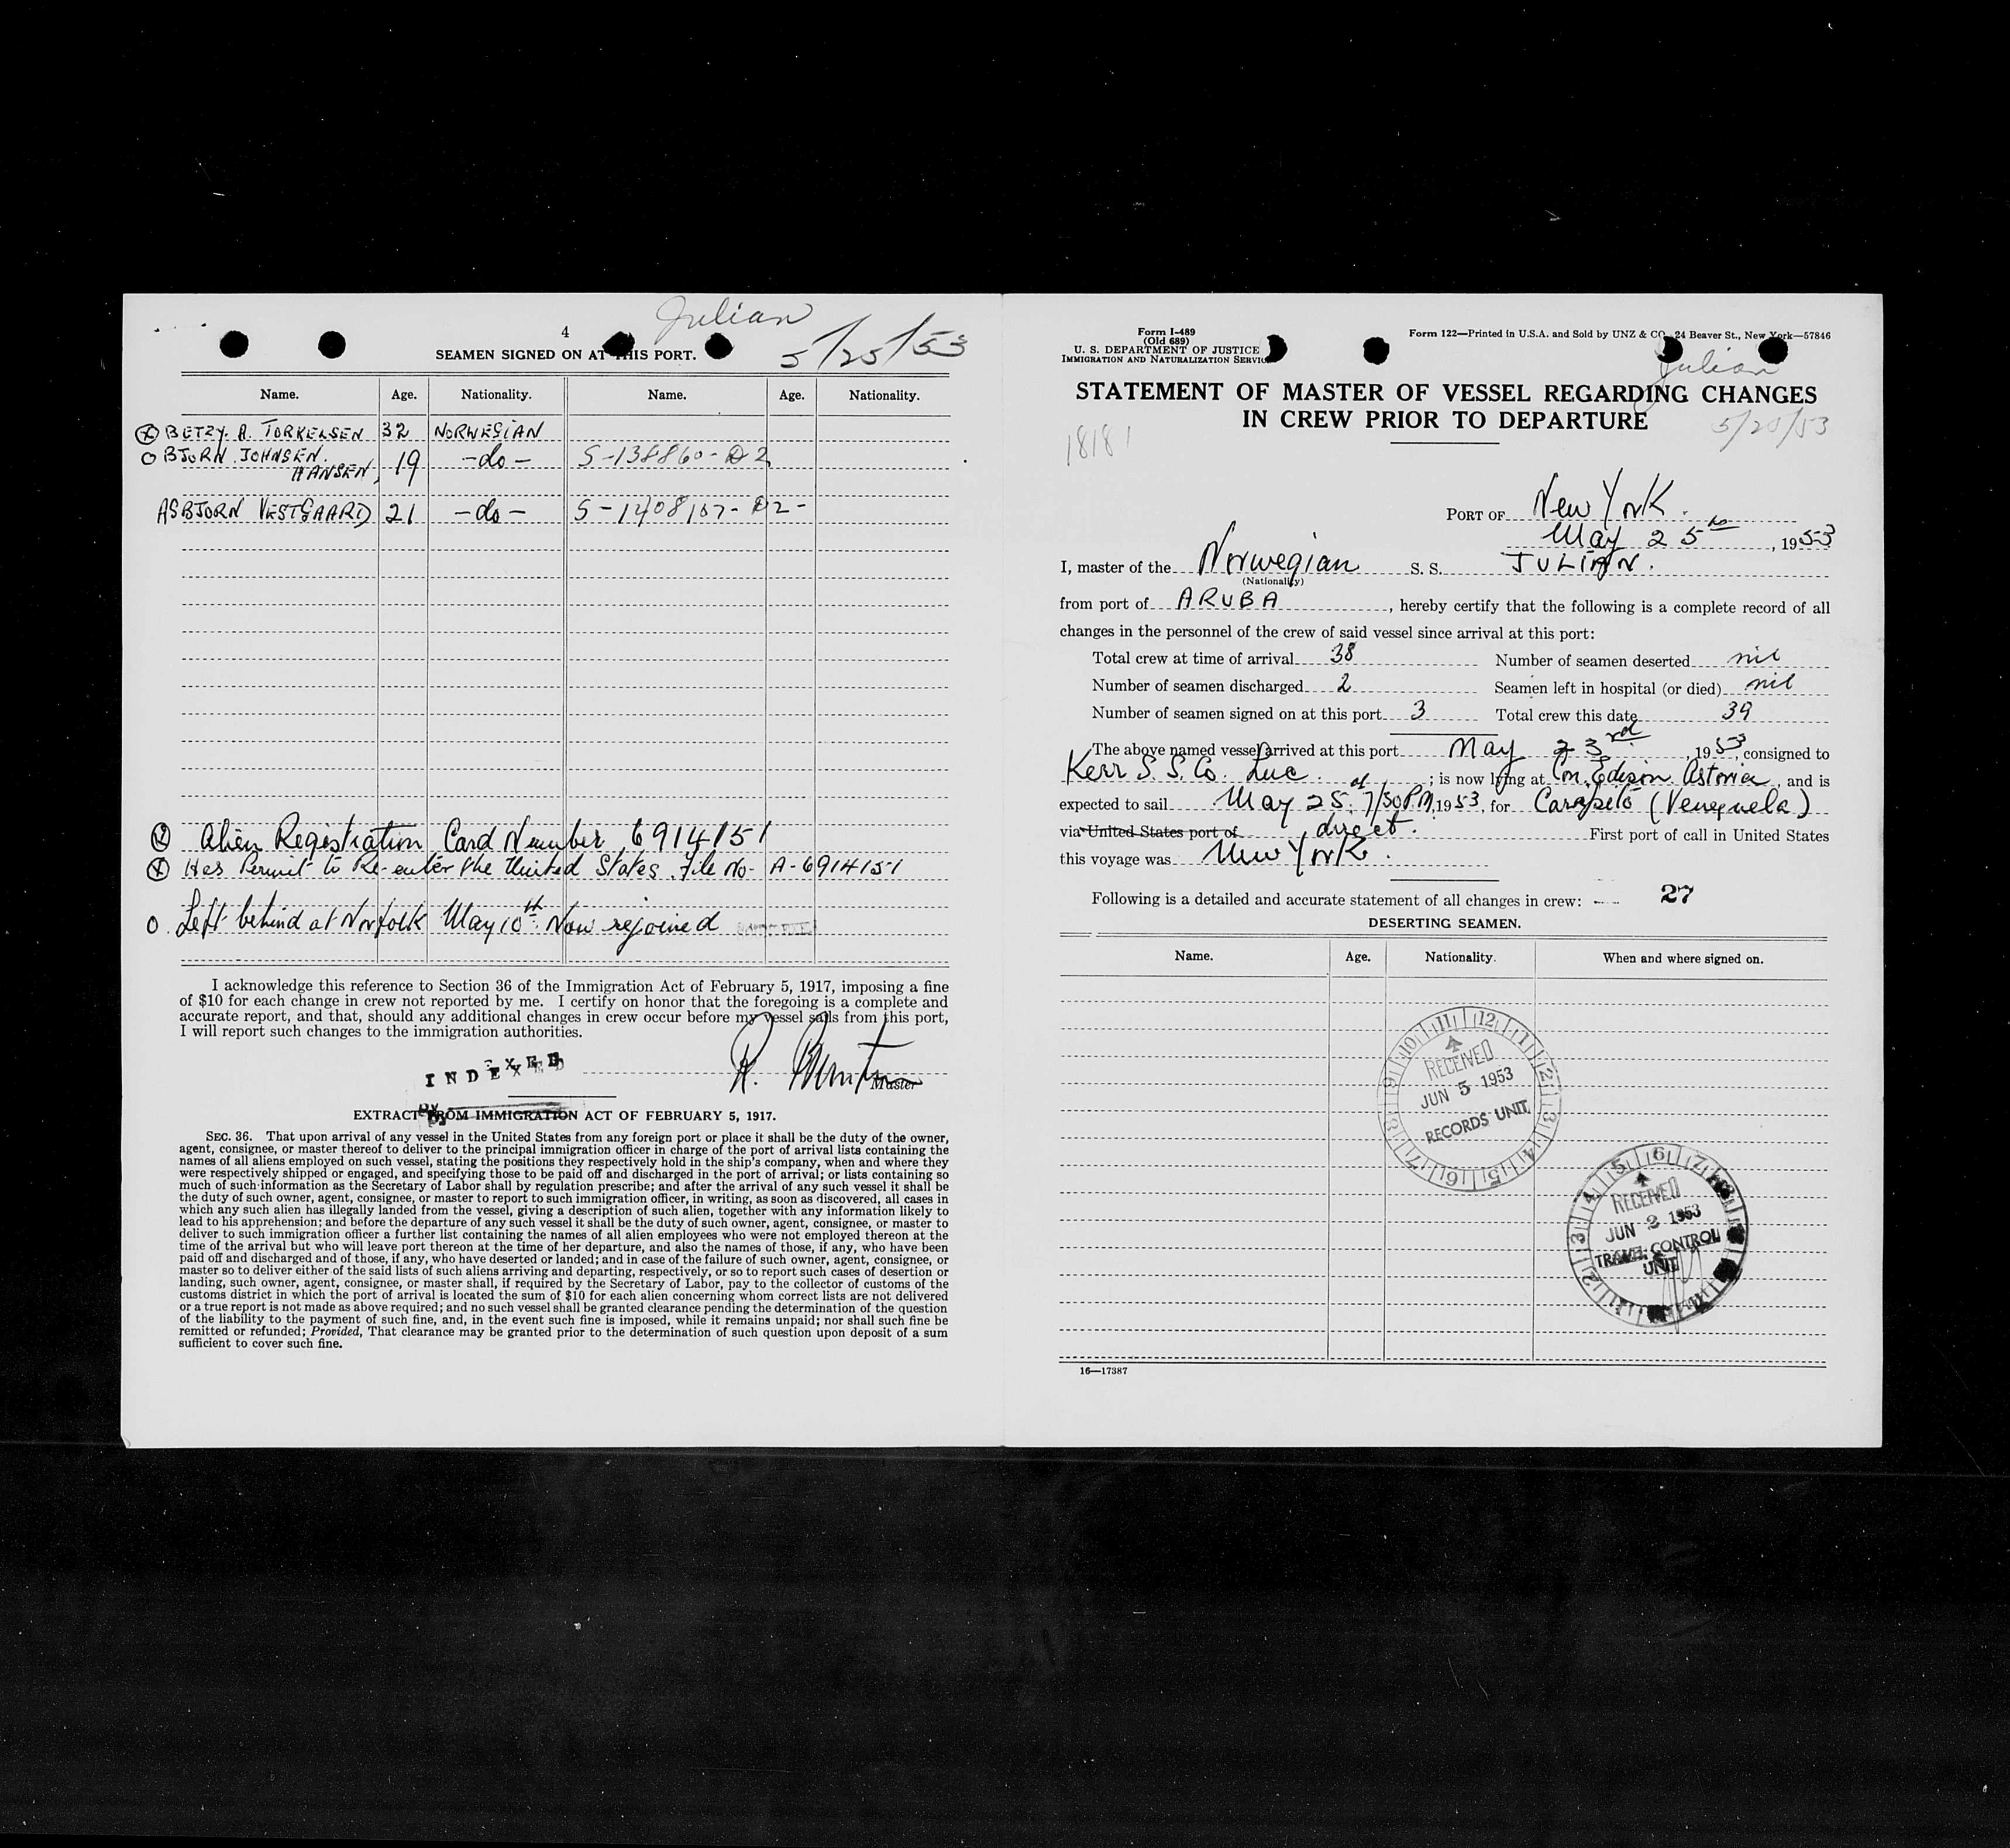 Julian
5/25/53
4
SEAMEN SIGNED ON AT THIS PORT.
Name. Age. Nationality. Name. Age. Nationality.
BETZY. A. TORKELSEN 32 NORWEGIAN
O BJORN. JOHNSEN.
HANSEN, 19 -do- S-138860-D2
ASBJORN VESTGAARD 21 -do- S-1408107-D2-
Alien Registration Card Number 6914151
Has Permit to Re-enter the United States. File No- A-6914151
O. Left behind at Norfolk May 10th. Now rejoined
I acknowledge this reference to Section 36 of the Immigration Act of February 5, 1917, imposing a fine
of $10 for each change in crew not reported by me. I certify on honor that the foregoing is a complete and
accurate report, and that, should any additional changes in crew occur before my vessel sails from this port,
I will report such changes to the immigration authorities.
INDEXED
R.
Master
EXTRACT FROM IMMIGRATION ACT OF FEBRUARY 5, 1917.
SEC. 36. That upon arrival of any vessel in the United States from any foreign port or place it shall be the duty of the owner,
agent, consignee, or master thereof to deliver to the principal immigration officer in charge of the port of arrival lists containing the
names of all aliens employed on such vessel, stating the positions they respectively hold in the ship's company, when and where they
were respectively shipped or engaged, and specifying those to be paid off and discharged in the port of arrival; or lists containing so
much of such information as the Secretary of Labor shall by regulation prescribe; and after the arrival of any such vessel it shall be
the duty of such owner, agent, consignee, or master to report to such immigration officer, in writing, as soon as discovered, all cases in
which any such alien has illegally landed from the vessel, giving a description of such alien, together with any information likely to
lead to his apprehension; and before the departure of any such vessel it shall be the duty of such owner, agent, consignee, or master to
deliver to such immigration officer a further list containing the names of all alien employees who were not employed thereon at the
time of the arrival but who will leave port thereon at the time of her departure, and also the names of those, if any, who have been
paid off and discharged and of those, if any, who have deserted or landed; and in case of the failure of such owner, agent, consignee, or
master so to deliver either of the said lists of such aliens arriving and departing, respectively, or so to report such cases of desertion or
landing, such owner, agent, consignee, or master shall, if required by the Secretary of Labor, pay to the collector of customs of the
customs district in which the port of arrival is located the sum of $10 for each alien concerning whom correct lists are not delivered
or a true report is not made as above required; and no such vessel shall be granted clearance pending the determination of the question
of the liability to the payment of such fine, and, in the event such fine is imposed, while it remains unpaid; nor shall such fine be
remitted or refunded; Provided, That clearance may be granted prior to the determination of such question upon deposit of a sum
sufficient to cover such fine.
Form I-489
(Old 689)
U. S. DEPARTMENT OF JUSTICE
IMMIGRATION AND NATURALIZATION SERVICE
Form 122—Printed in U.S.A. and Sold by UNZ & CO., 24 Beaver St., New York—57846
Julian
STATEMENT OF MASTER OF VESSEL REGARDING CHANGES
IN CREW PRIOR TO DEPARTURE
5/25/53
18181
PORT OF New York.
May 25th, 1953
I, master of the Norwegian S. S. JULIAN.
(Nationality)
from port of ARUBA, hereby certify that the following is a complete record of all
changes in the personnel of the crew of said vessel since arrival at this port:
Total crew at time of arrival 38 Number of seamen deserted nil
Number of seamen discharged 2 Seamen left in hospital (or died) nil
Number of seamen signed on at this port 3 Total crew this date 39
The above named vessel arrived at this port May 23rd, 1953, consigned to
Kerr S. S. Co. Inc.; is now lying at Con. Edison. Astoria, and is
expected to sail May 25. 7/30 P.M, 1953, for (Venezuela)
via United States port of, direct. First port of call in United States
this voyage was New York.
Following is a detailed and accurate statement of all changes in crew: 27
DESERTING SEAMEN.
Name. Age. Nationality. When and where signed on.
RECEIVED
JUN 5 1953
RECORDS UNIT
RECEIVED
JUN 2 1953
TRAVEL CONTROL
UNIT
16—17387